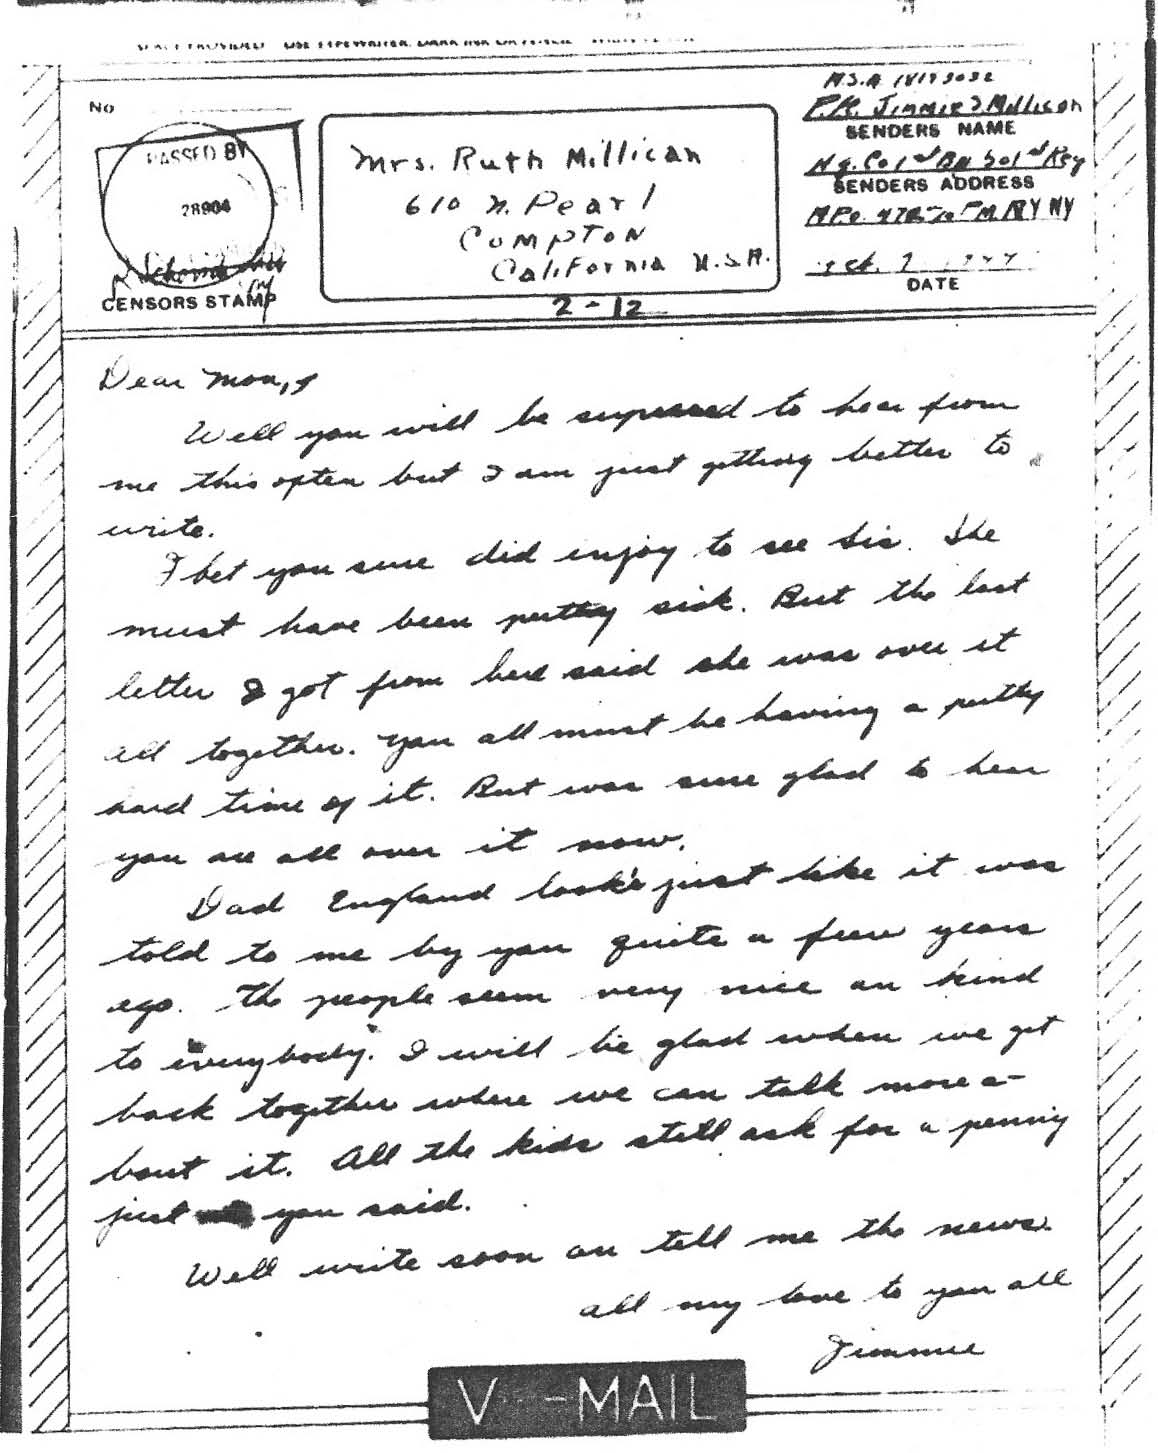 No
PASSED BY
28904
CENSORS STAMP
Mrs. Ruth Millican
610 N. Pearl
COMPTON
California U.S.A.
2-12
Jimmie Millican
SENDERS NAME
Hq. Co 1st Bn 501st
SENDERS ADDRESS
NY
DATE
Dear Mom,
Well you will be surprised to hear from
me this often but I am just getting better to
write.
I bet you sure did enjoy to see Sis. She
must have been pretty sick. But the last
letter I got from her said she was over it
all together. You all must be having a pretty
hard time of it. But was sure glad to hear
you are all over it now.
Dad England look's just like it was
told to me by you quite a few years
ago. The people seem very nice an kind
to everybody. I will be glad when we get
back together where we can talk more a-
bout it. All the kids still ask for a penny
just you said.
Well write soon an tell me the news.
all my love to you all
Jimmie
V--MAIL